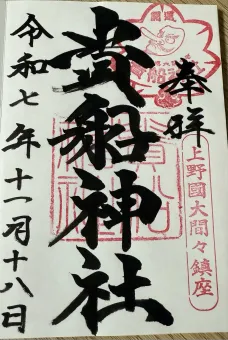 奉拝
上野國大間々鎮座
開運
貴船神社
令和七年十一月十八日